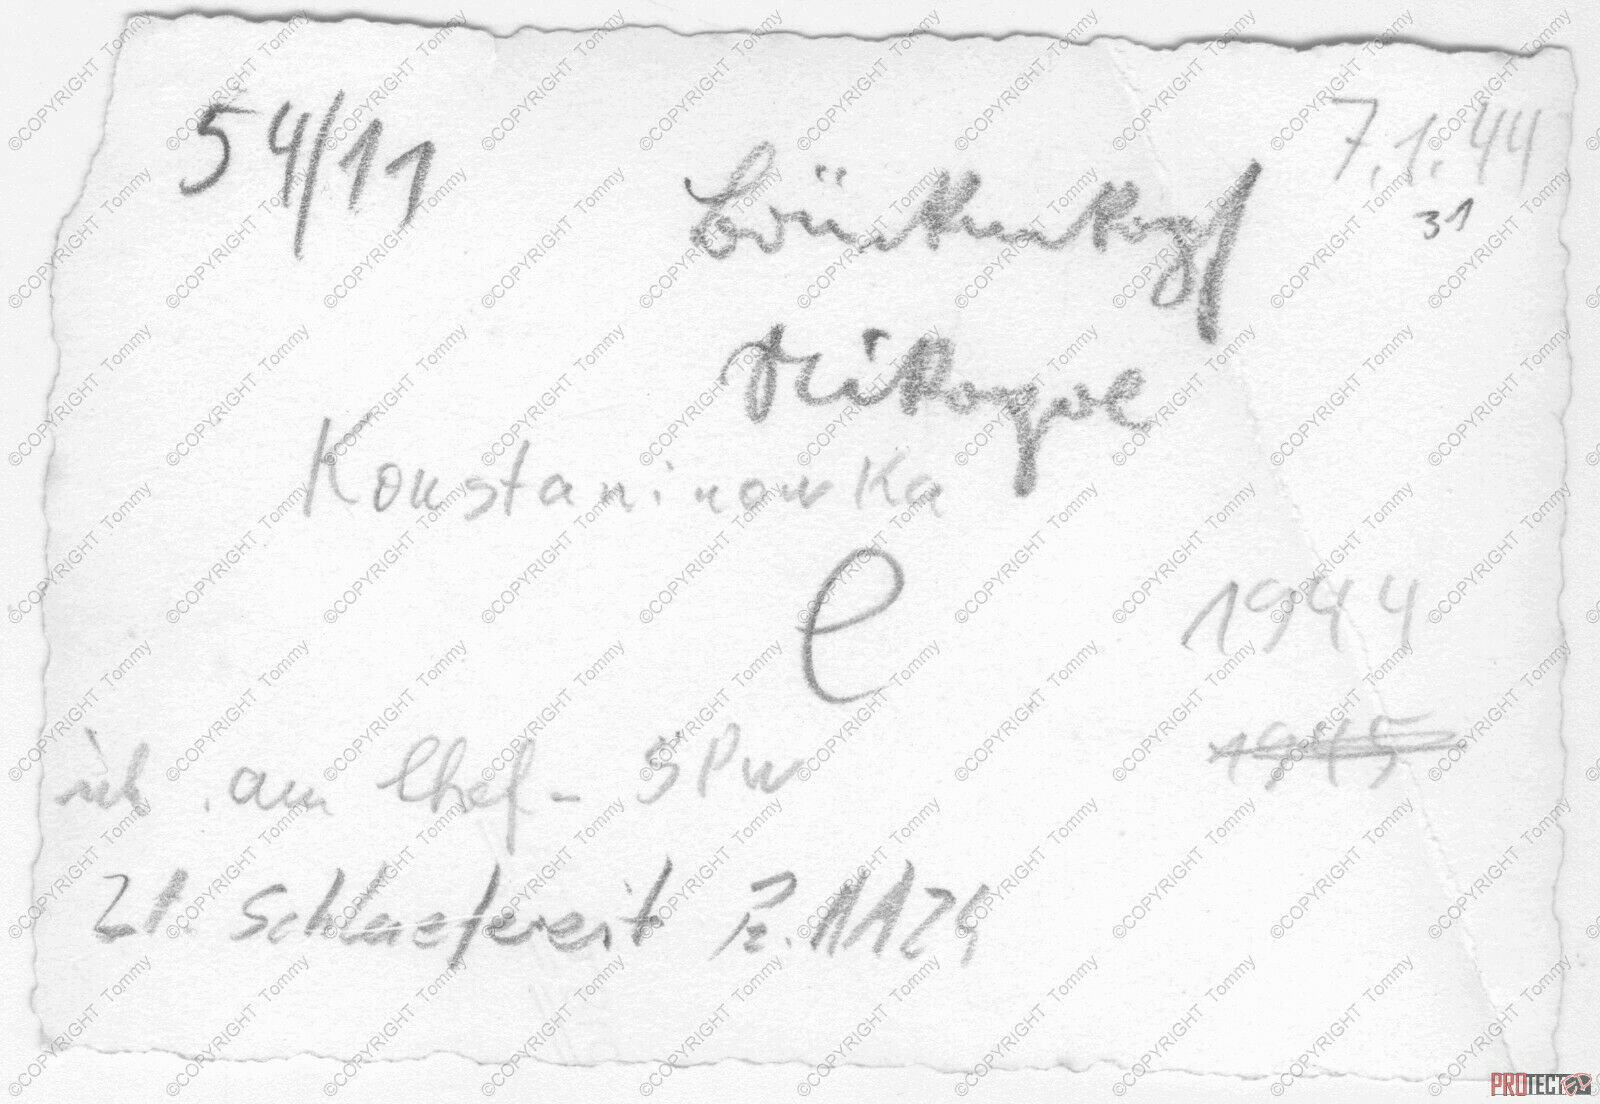 54/11
7.1.44
31
Brückenkopf
Nikopol
Konstaninowka
e
1944
1945
ich . am Chef - SPw
Lt. Schlaefereit Pz. AA 24
©COPYRIGHT Tommy
PROTECT